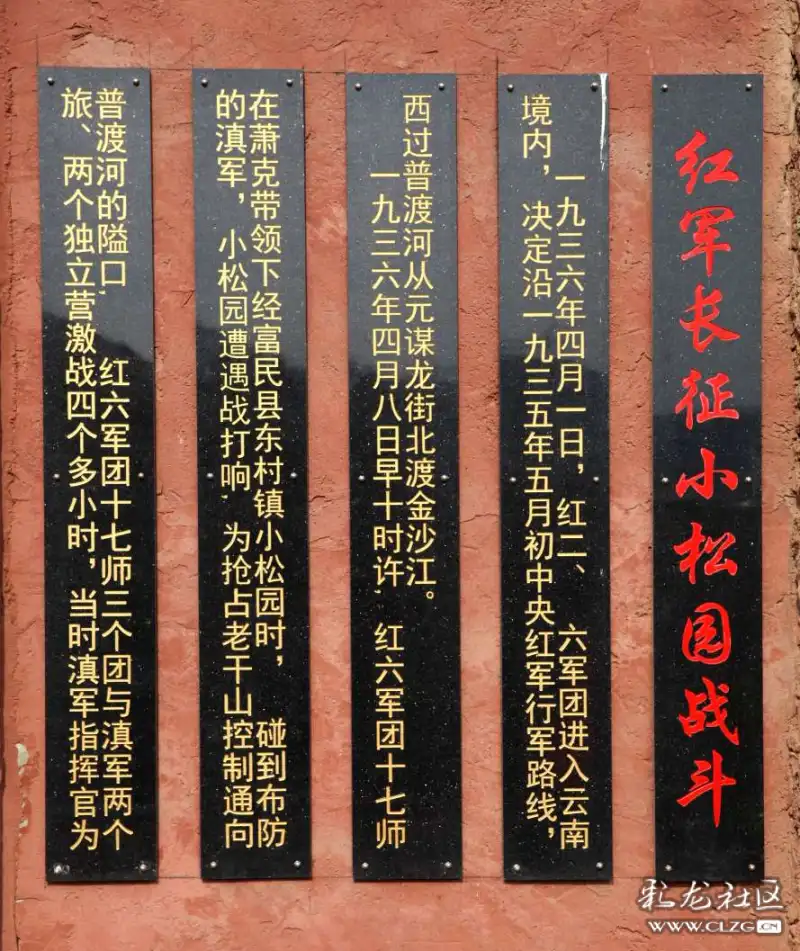 红军长征小松园战斗
一九三六年四月一日，红二、六军团进入云南
境内，决定沿一九三五年五月初中央红军行军路线，
西过普渡河从元谋龙街北渡金沙江。
一九三六年四月八日早十时许，红六军团十七师
在萧克带领下经富民县东村镇小松园时，碰到布防
的滇军，小松园遭遇战打响，为抢占老干山控制通向
普渡河的隘口，红六军团十七师三个团与滇军两个
旅、两个独立营激战四个多小时，当时滇军指挥官为
彩龙社区
WWW.CLZG.CN